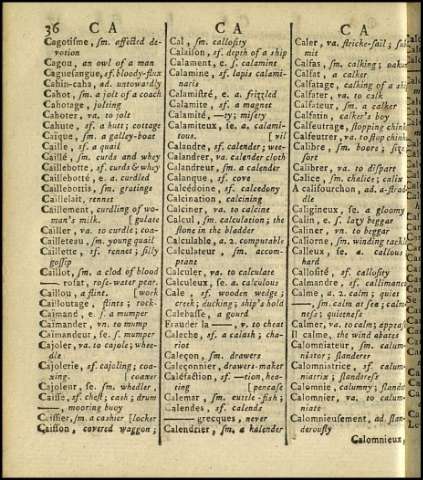 36 C A
C A
C A
Cagotisme, sm. affected de-
votion
Cagou, an owl of a man
Caguesangue, sf. bloody-flux
Cahin-caha, ad. untowardly
Cahot, sm. a jolt of a coach
Cahotage, jolting
Cahoter, va. to jolt
Cahute, sf. a hut; cottage
Caïque, sm. a galley-boat
Caille, sf. a quail
Caillé, sm. curds and whey
Caillebotte, sf. curds & whey
Caillebotté, e. a. curdled
Caillebottis, sm. gratings
Caillelait, rennet
Caillement, curdling of wo-
man's milk. [gulate
Cailler, va. to curdle; coa-
Cailleteau, sm. young quail
Caillette, sf. rennet; silly
gossip
Caillot, sm. a clod of blood
—— rosat, rose-water pear.
Caillou, a flint. [work
Cailloutage, flints; rock-
Caïmand, e. s. a mumper
Caïmander, vn. to mump
Caïmandeur, se. s. mumper
Cajoler, va. to cajole; whee-
dle
Cajolerie, sf. cajoling; coa-
xing. [coaxer
Cajoleur, se. sm. whedler,
Caisse, sf. chest; cash; drum
——, mooring buoy
Caissier, sm. a cashier [locker
Caisson, covered waggon;
Cal, sm. callosity
Calaison, sf. depth of a ship
Calament, e. s. calamint
Calamine, sf. lapis calami-
naris
Calamistré, e. a. frizzled
Calamite, sf. a magnet
Calamité, —ty; misery
Calamiteux, se. a. calami-
tous. [vil
Calandre, sf. calender; wee-
Calandrer, va. calender cloth
Calandreur, sm. a calender
Calanque, sf. cove
Calcédoine, sf. calcedony
Calcination, calcining
Calciner, va. to calcine
Calcul, sm. calculation; the
stone in the bladder
Calculable, a. 2. computable
Calculateur, sm. accom-
ptant
Calculer, va. to calculate
Calculeux, se. a. calculous
Cale, sf. wooden wedge;
creek; ducking; ship's hold
Calebasse, a gourd
Frauder la ——, v. to cheat
Caleche, sf. a calash; cha-
riot
Caleçon, sm. drawers
Caleçonnier, drawers-maker
Caléfaction, sf. —tion, hea-
ting [pencase
Calemar, sm. cuttle-fish;
Calendes, sf. calends
—— grecques, never
Calendrier, sm. a kalender
Caler, va. stricke-sail; sub-
mit
Calfas, sm. calking; oakum
Calfat, a calker
Calfatage, calking of a ship
Calfater, va. to calk
Calfateur, sm. a calker
Calfatin, calker's boy
Calfeutrage, stopping chinks
Calfeutrer, va. to stop chinks
Calibre, sm. bore; size
sort
Calibrer, va. to dispart
Calice, sm. chalice; calix
A califourchon, ad. a-strad-
dle
Caligineux, se. a gloomy
Calin, e. s. lazy beggar
Caliner, vn. to beggar
Caliorne, sm. winding tackle
Calleux, se. a. callous
hard
Callosité, sf. callosity
Calmande, sf. callimanco
Calme, a. 2. calm; quiet
——, sm. calm at sea; calm-
ness; quietness
Calmer, va. to calm; appease
Il calme, the wind abates
Calomniateur, sm. calum-
niator; slanderer
Calomniatrice, sf. calum-
niatrix, slandress
Calomnie, calumny; slander
Calomnier, va. to calum-
niate
Calomnieusement, ad. slan-
derously
Calomnieux,